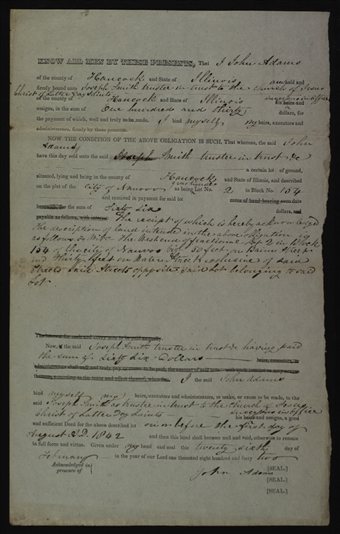 KNOW ALL MEN BY THESE PRESENTS, That I John Adams
of the county of Hancock and State of Illinois am held and
firmly bound unto Joseph Smith trustee in trust to the church of Jesus
Christ of Latter Day Saints
of the county of Hancock and State of Illinois
assigns, in the sum of One hundred and thirty dollars, for
the payment of which, well and truly to be made, I bind myself my heirs, executors and
administrators, firmly by these presents.
NOW THE CONDITION OF THE ABOVE OBLIGATION IS SUCH, That whereas, the said John
Adams
have this day sold unto the said Joseph Smith trustee in trust &c
a certain lot of ground,
situated, lying and being in the county of Hancock and State of Illinois, and described
on the plot of the city of Nauvoo as being Lot No. fractional 2 in Block No. 154
and received in payment for said
the sum of Sixty Six
dollars, and
The receipt of which is hereby acknowledged
The description of land in the above obligation is
as follows to wit. The West end of fractional Lot 2 in Block
154 in the city of Nauvoo 50 feet on Main Street
and Thirty feet on Water Street exclusive of said
Streets said Streets opposite said lot belonging to said
Lot.
Now, if the said Joseph Smith trustee in trust &c having paid
the sum of Sixty Six Dollars
I the said John Adams
bind myself my heirs, executors and administrators, to make, or cause to be made, to the
said Joseph Smith as trustee in trust to the Church of Jesus
Christ of Latter Day Saints successors in office
his heirs and assigns, a good
and sufficient Deed for the above described lot on or before the first day of
August A.D. 1842 and then this bond shall become null and void, otherwise to remain
in full force and virtue. Given under my hand and seal the twenty sixth day of
February in the year of our Lord one thousand eight hundred and forty two
Acknowledged in
presence of
John Adams [SEAL.]
[SEAL.]
[SEAL.]
[SEAL.]